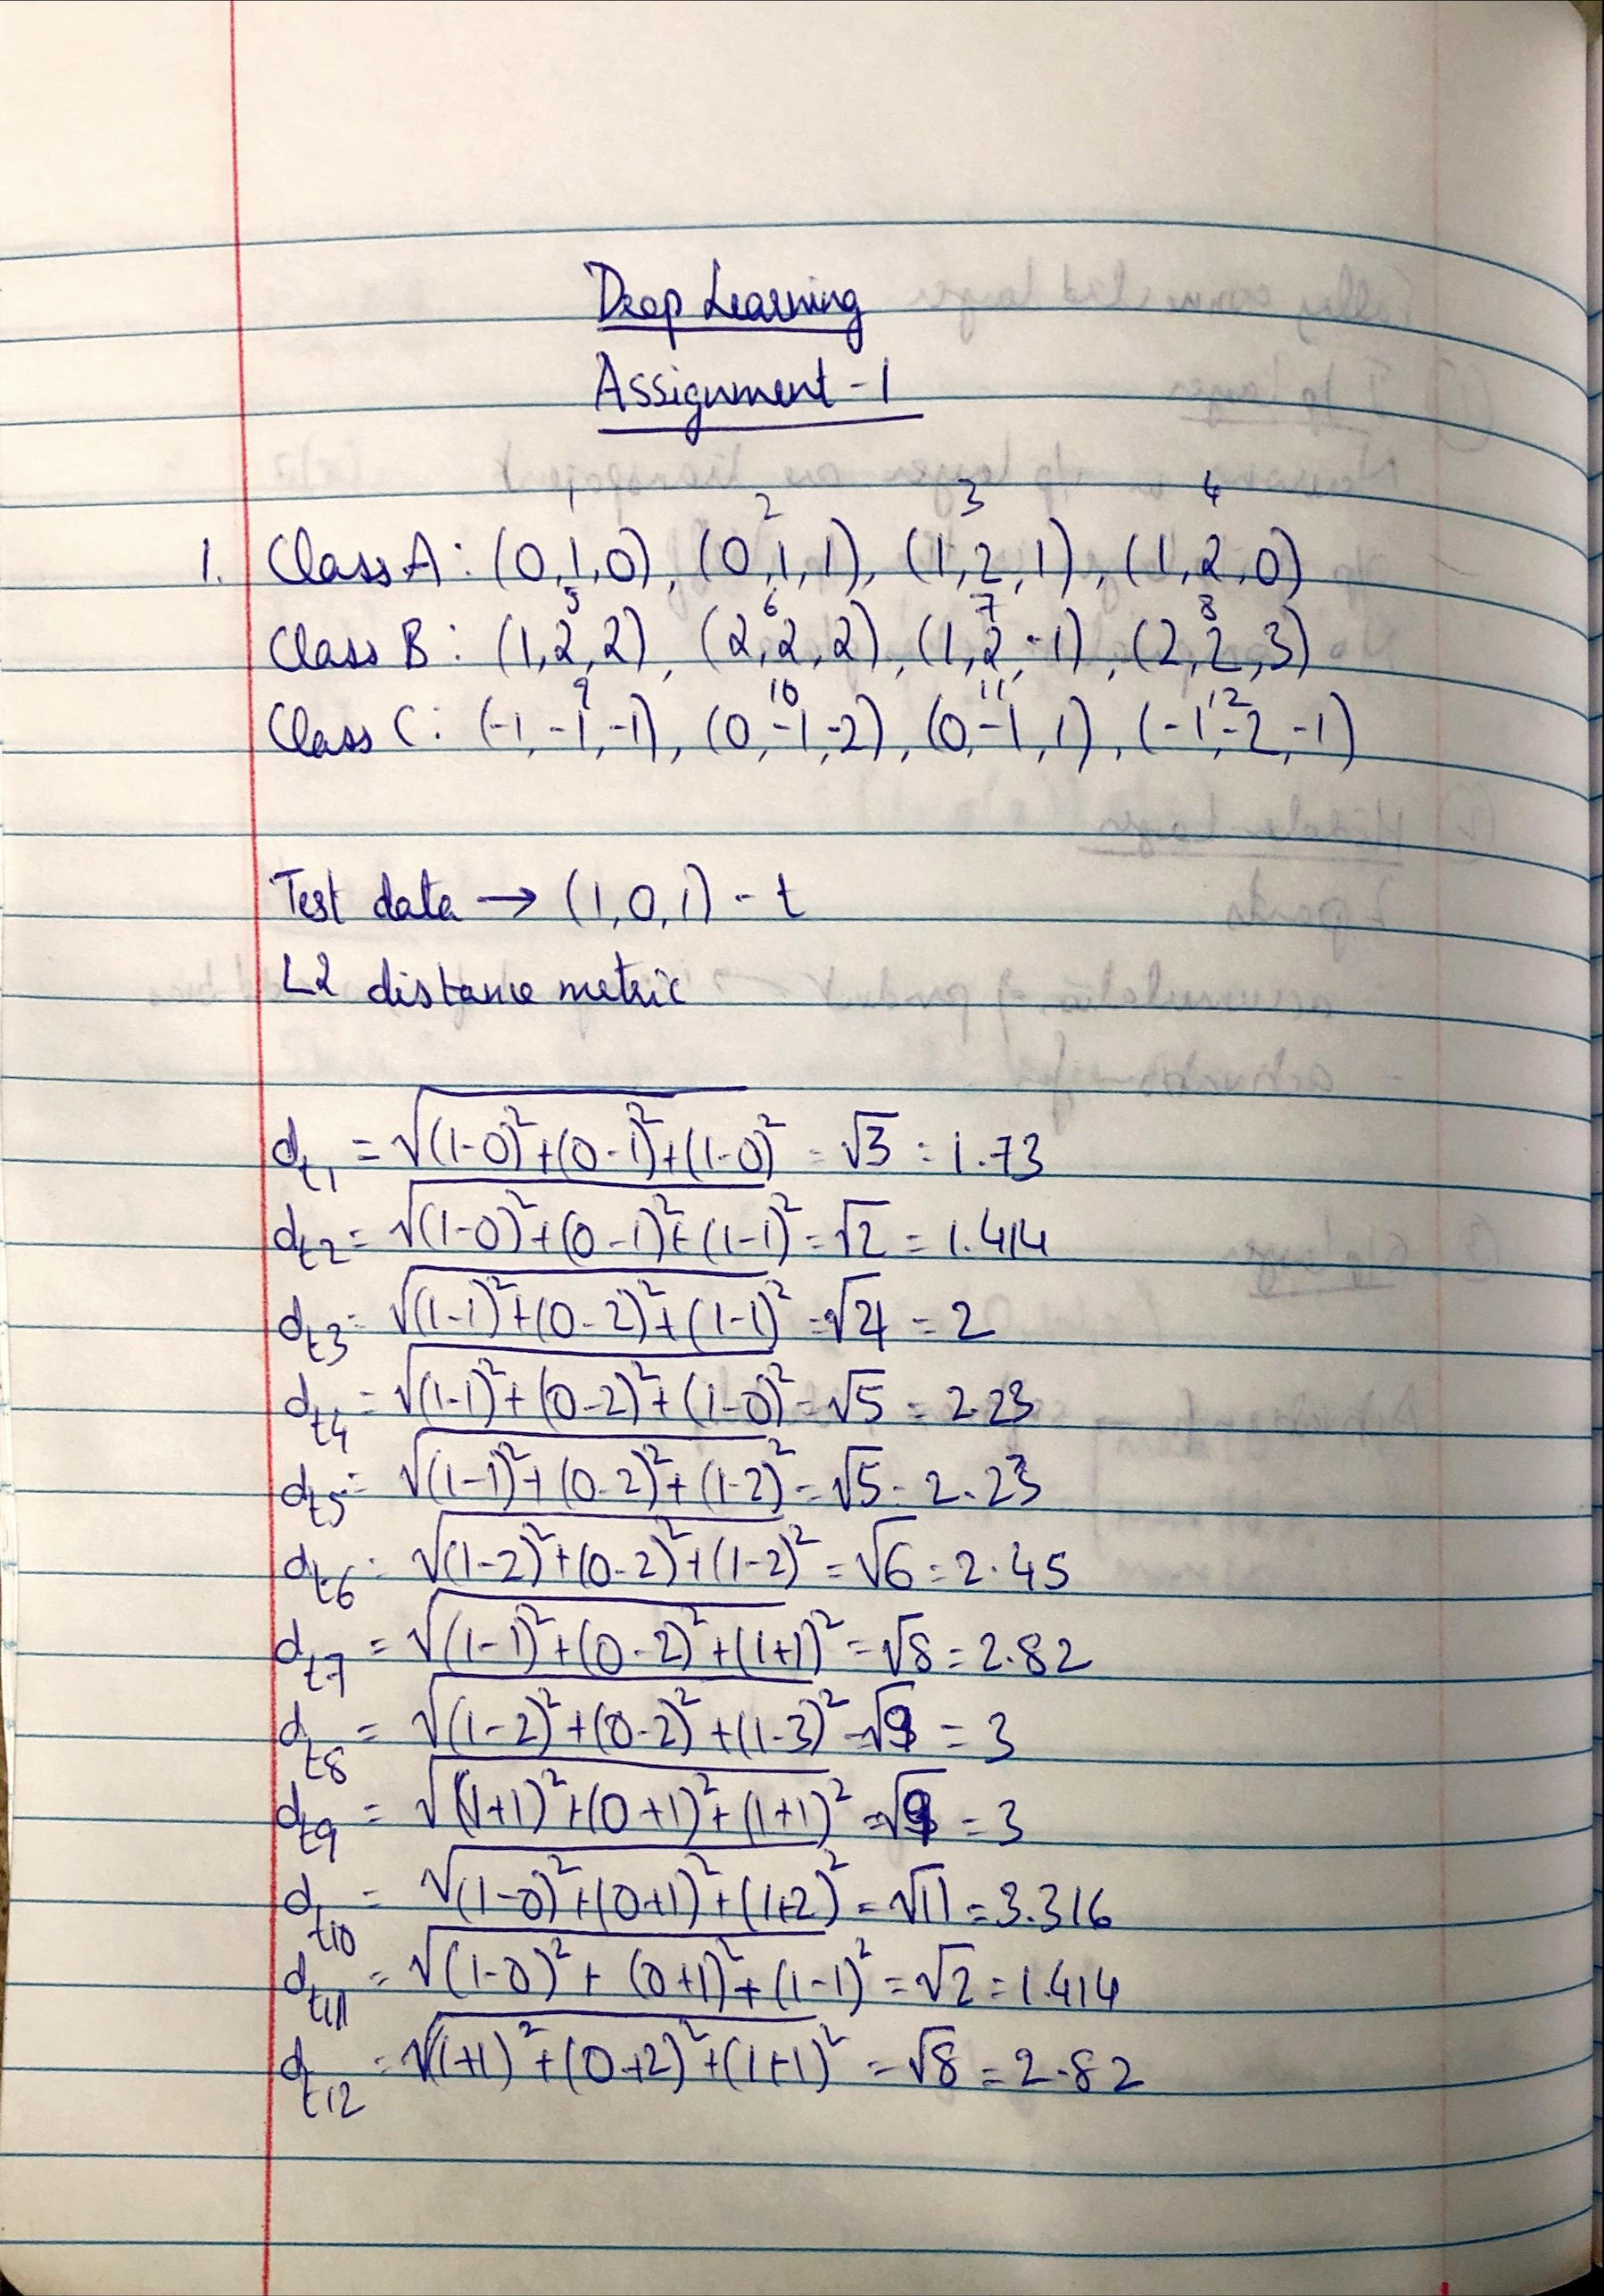 Deep Learning
Assignment-1
1 2 3 4
1. Class A: (0,1,0), (0,1,1), (1,2,1), (1,2,0)
5 6 7 8
Class B: (1,2,2), (2,2,2), (1,2,-1), (2,2,3)
9 10 11 12
Class C: (-1,-1,-1), (0,-1,-2), (0,-1,1), (-1,-2,-1)
Test data → (1,0,1) - t
L2 distance metric
d_t1 = √(1-0)²+(0-1)²+(1-0)² = √3 = 1.73
d_t2 = √(1-0)²+(0-1)²+(1-1)² = √2 = 1.414
d_t3 = √(1-1)²+(0-2)²+(1-1)² = √4 = 2
d_t4 = √(1-1)²+(0-2)²+(1-0)² = √5 = 2.23
d_t5 = √(1-1)²+(0-2)²+(1-2)² = √5 = 2.23
d_t6 = √(1-2)²+(0-2)²+(1-2)² = √6 = 2.45
d_t7 = √(1-1)²+(0-2)²+(1+1)² = √8 = 2.82
d_t8 = √(1-2)²+(0-2)²+(1-3)² = √9 = 3
d_t9 = √(1+1)²+(0+1)²+(1+1)² = √9 = 3
d_t10 = √(1-0)²+(0+1)²+(1+2)² = √11 = 3.316
d_t11 = √(1-0)²+(0+1)²+(1-1)² = √2 = 1.414
d_t12 = √(1+1)²+(0+2)²+(1+1)² = √8 = 2.82